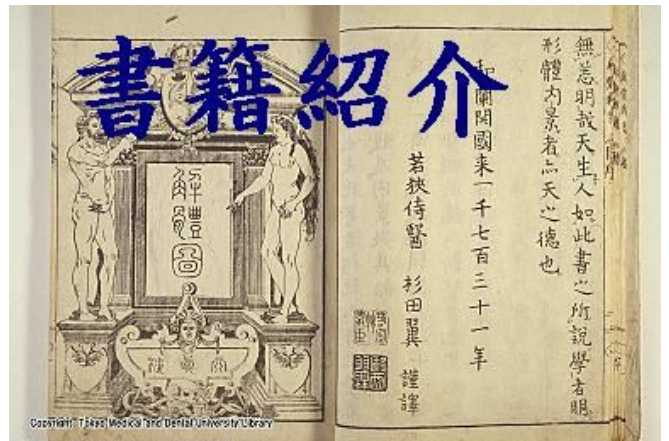 書籍紹介
無恙明哉天生人如此書之所說學者明
形體内景者亦天之德也
和蘭開國来一千七百三十一年
若狹侍醫 杉田翼 謹譯
解體圖
Copyright: Tokyo Medical and Dental University Library